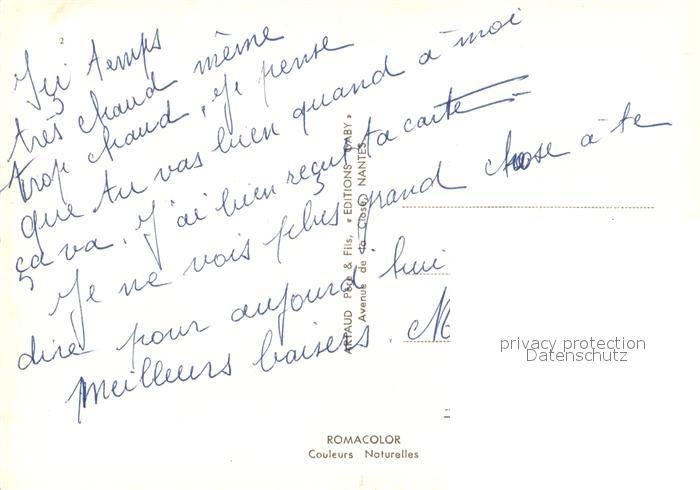 2
Ici temps
très chaud même
trop chaud. Je pense
que tu vas bien quand à moi
ça va. J'ai bien reçut ta carte =
Je ne vois plus grand chose à te
dire pour aujourd'hui
Meilleurs baisers. M
ARTAUD Père & Fils, « EDITIONS GABY »
Avenue de la Close, NANTES
privacy protection
Datenschutz
ROMACOLOR
Couleurs Naturelles